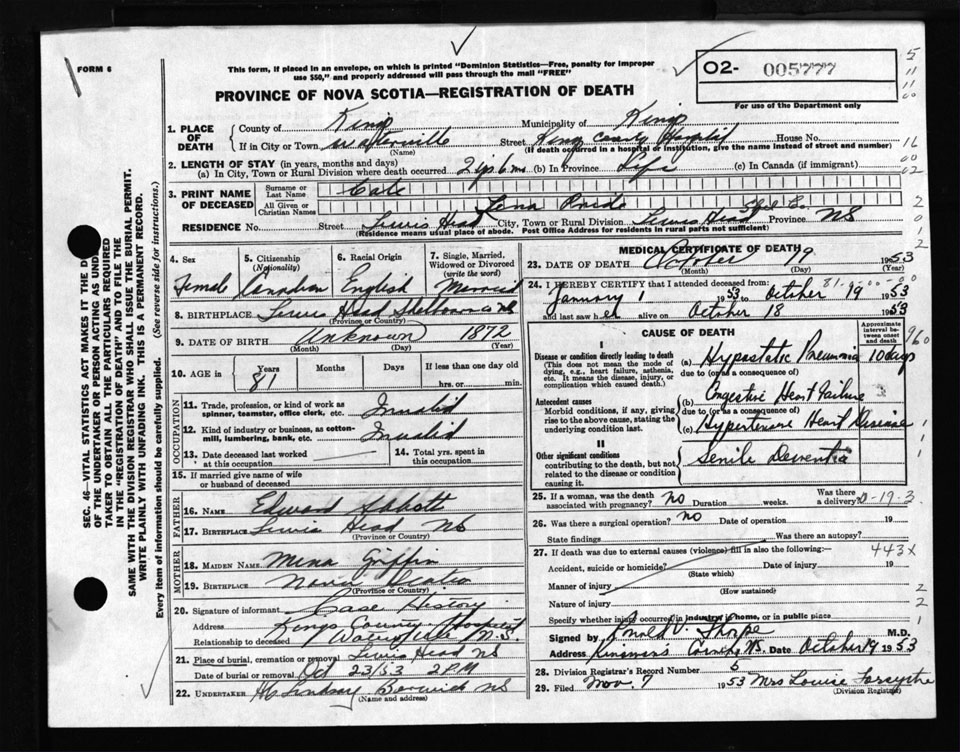 FORM 6
This form, if placed in an envelope, on which is printed "Dominion Statistics—Free, penalty for improper
use $50," and properly addressed will pass through the mail "FREE"
O2- 005777
For use of the Department only
PROVINCE OF NOVA SCOTIA—REGISTRATION OF DEATH
SEC. 46—VITAL STATISTICS ACT MAKES IT THE D
OF THE UNDERTAKER OR PERSON ACTING AS UND
TAKER TO OBTAIN ALL THE PARTICULARS REQUIRED
IN THE "REGISTRATION OF DEATH" AND TO FILE THE
SAME WITH THE DIVISION REGISTRAR WHO SHALL ISSUE THE BURIAL PERMIT.
WRITE PLAINLY WITH UNFADING INK. THIS IS A PERMANENT RECORD.
Every item of information should be carefully supplied. (See reverse side for instructions.)
1. PLACE OF DEATH
County of Kings Municipality of Kings
If in City or Town Waterville Street Kings County Hospital House No.
(Name) (If death occurred in a hospital or institution, give the name instead of street and number)
2. LENGTH OF STAY (in years, months and days)
(a) In City, Town or Rural Division where death occurred 2 yrs 6 ms (b) In Province Life (c) In Canada (if immigrant)
3. PRINT NAME OF DECEASED
Surname or Last Name
All Given or Christian Names Lena
RESIDENCE No. Street Lewis Head City, Town or Rural Division Lewis Head Province NS
(Residence means usual place of abode. Post Office Address for residents in rural parts not sufficient)
4. Sex Female
5. Citizenship (Nationality) Canadian
6. Racial Origin English
7. Single, Married, Widowed or Divorced (write the word) Married
8. BIRTHPLACE Lewis Head Shelburne NS
(Province or Country)
9. DATE OF BIRTH Unknown 1872
(Month) (Day) (Year)
10. AGE in Years 81 Months Days If less than one day old
hrs. or min.
OCCUPATION
11. Trade, profession, or kind of work as spinner, teamster, office clerk, etc. Invalid
12. Kind of industry or business, as cotton-mill, lumbering, bank, etc. Invalid
13. Date deceased last worked at this occupation
14. Total yrs. spent in this occupation
15. If married give name of wife or husband of deceased
FATHER
16. NAME Edward Abbott
17. BIRTHPLACE Lewis Head NS
(Province or Country)
MOTHER
18. MAIDEN NAME Mena Griffin
19. BIRTHPLACE Nova Scotia
(Province or Country)
20. Signature of informant Case History
Address Kings County Hospital
Relationship to deceased Waterville N.S.
21. Place of burial, cremation or removal Lewis Head NS
Date of burial or removal Oct 23/53 2 PM
22. UNDERTAKER Lindsay Berwick NS
(Name and address)
MEDICAL CERTIFICATE OF DEATH
23. DATE OF DEATH October 19 1953
(Month) (Day) (Year)
24. I HEREBY CERTIFY that I attended deceased from:
January 1 1953 to October 19 1953
and last saw her alive on October 18 1953
CAUSE OF DEATH
Approximate interval between onset and death
I
Disease or condition directly leading to death
(This does not mean the mode of dying, e.g., heart failure, asthenia, etc. It means the disease, injury, or complication which caused death.)
(a) Hypostatic Pneumonia 10 days
due to (or as a consequence of)
Antecedent causes
Morbid conditions, if any, giving rise to the above cause, stating the underlying condition last.
(b) Congestive Heart Failure
due to (or as a consequence of)
(c) Hypertensive Heart Disease
II
Other significant conditions
contributing to the death, but not related to the disease or condition causing it.
Senile Dementia
25. If a woman, was the death associated with pregnancy? No Duration weeks. Was there a delivery?
26. Was there a surgical operation? no Date of operation 19
State findings Was there an autopsy?
27. If death was due to external causes (violence) fill in also the following:- 443X
Accident, suicide or homicide? Date of injury 19
(State which)
Manner of injury
(How sustained)
Nature of injury
Specify whether injury occurred in industry, home, or in public place
Signed by V. Thorpe M.D.
Address Kinsman's Corner, NS. Date October 19 1953
28. Division Registrar's Record Number 5
29. Filed Nov. 7 1953 Mrs Louise Forsythe
(Division Registrar)